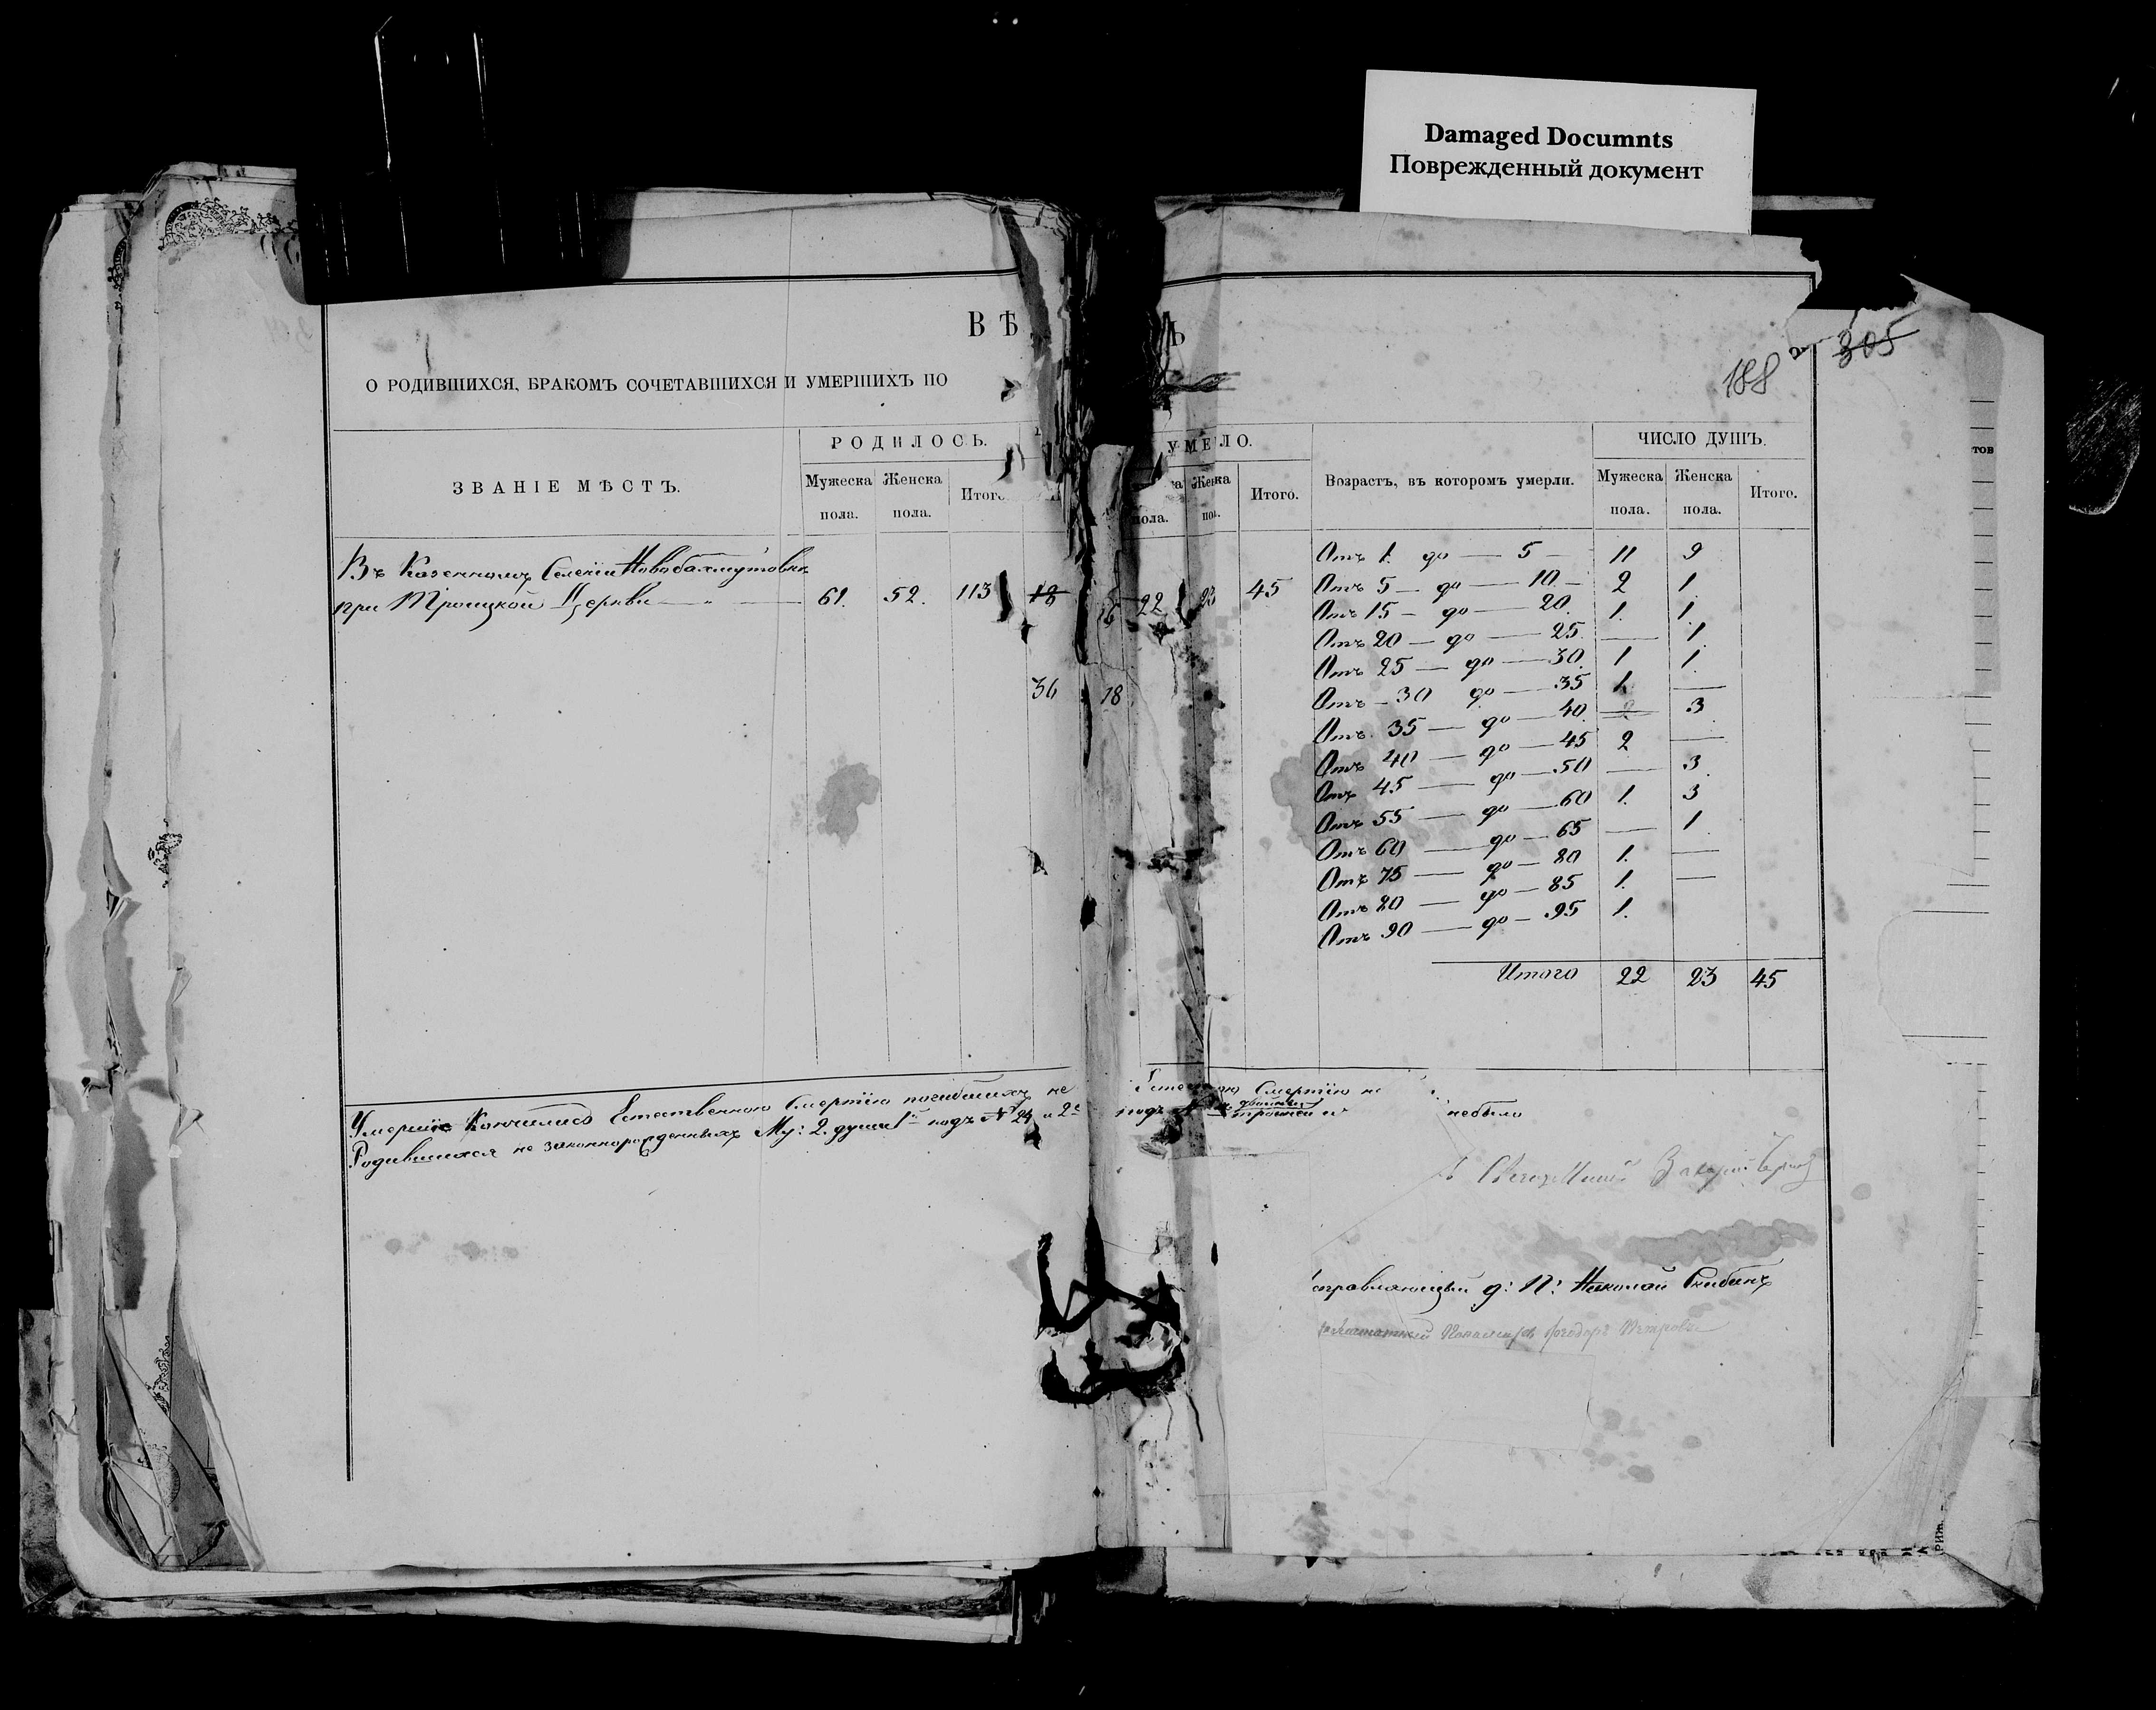 Damaged Documnts
Поврежденный документ
В Ѣ
Ь
305
188
О РОДИВШИХСЯ, БРАКОМЪ СОЧЕТАВШИХСЯ И УМЕРШИХЪ ПО
ЗВАНІЕ МѢСТЪ.
РОДИЛОСЬ.
Мужеска пола.
Женска пола.
Итого
УМЕ ЛО.
пола.
Женска пол.
Итого.
Возрастъ, въ которомъ умерли.
ЧИСЛО ДУШЪ.
Мужеска пола.
Женска пола.
Итого.
тов
Въ Казенномъ Селеніи Новобахмутовкѣ
при Троицкой Церкви — " — 61. 52. 113 18 22 23 45
36 18
Отъ 1 до — 5 — 11 9
Отъ 5 — до — 10 — 2 1.
Отъ 15 — до — 20. 1. 1.
Отъ 20 — до — 25. — 1
Отъ 25 — до — 30. 1 1.
Отъ — 30 до — 35 1. —
Отъ 35 — до — 40. — 3
Отъ 40 — до — 45 2 —
Отъ 45 — до — 50 — 3.
Отъ 55 — до — 60 1. 3
Отъ 60 — до — 65 — 1.
Отъ 75 — до — 80 1. —
Отъ 80 — до — 85 1. —
Отъ 90 — до — 95 1.
Итого 22 23 45
Умершіе Кончились Естественною Смертію погибшихъ не Смертію не
Родившихся не законнорожденныхъ Му: 2. души 1й подъ № 24 и 2й подъ № двойни тройней и небыло
Захарій
справляющій д: П: Николай Скибинъ
Пономарь Феодоръ Петровъ